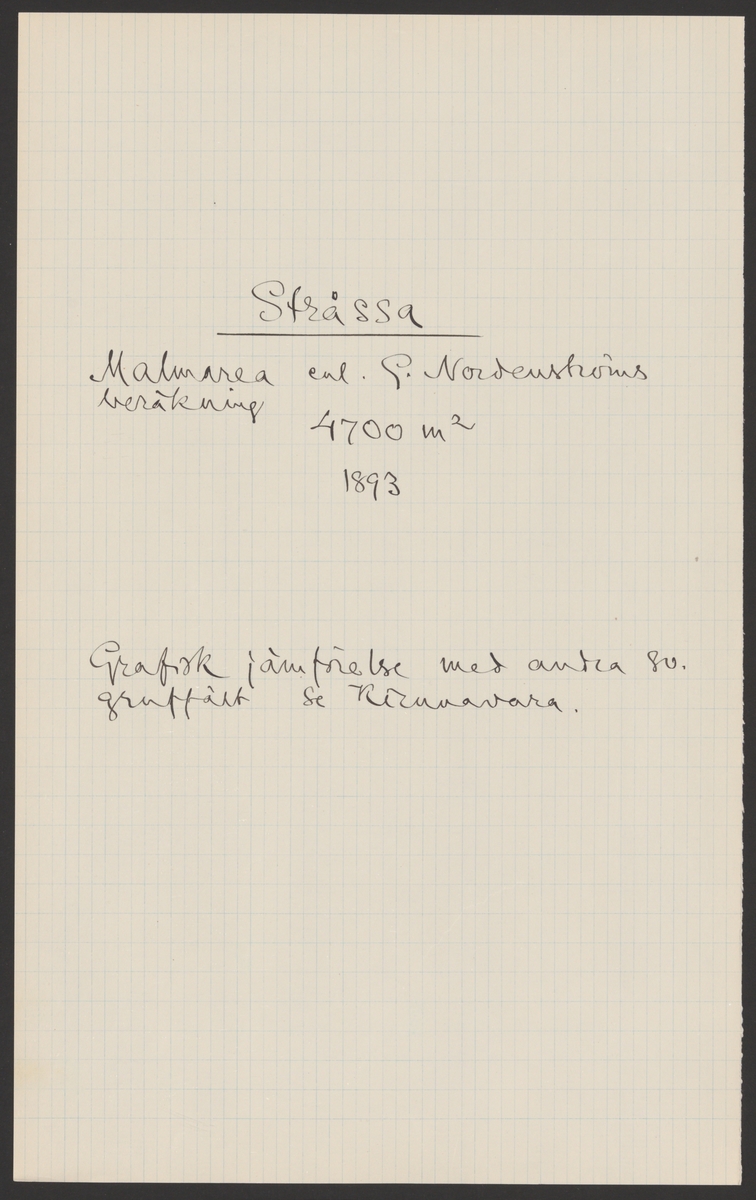 Stråssa
Malmarea enl. G. Nordenströms
beräkning
4700 m²
1893
Grafisk jämförelse med andra sv.
gruffält se Kirunavara.